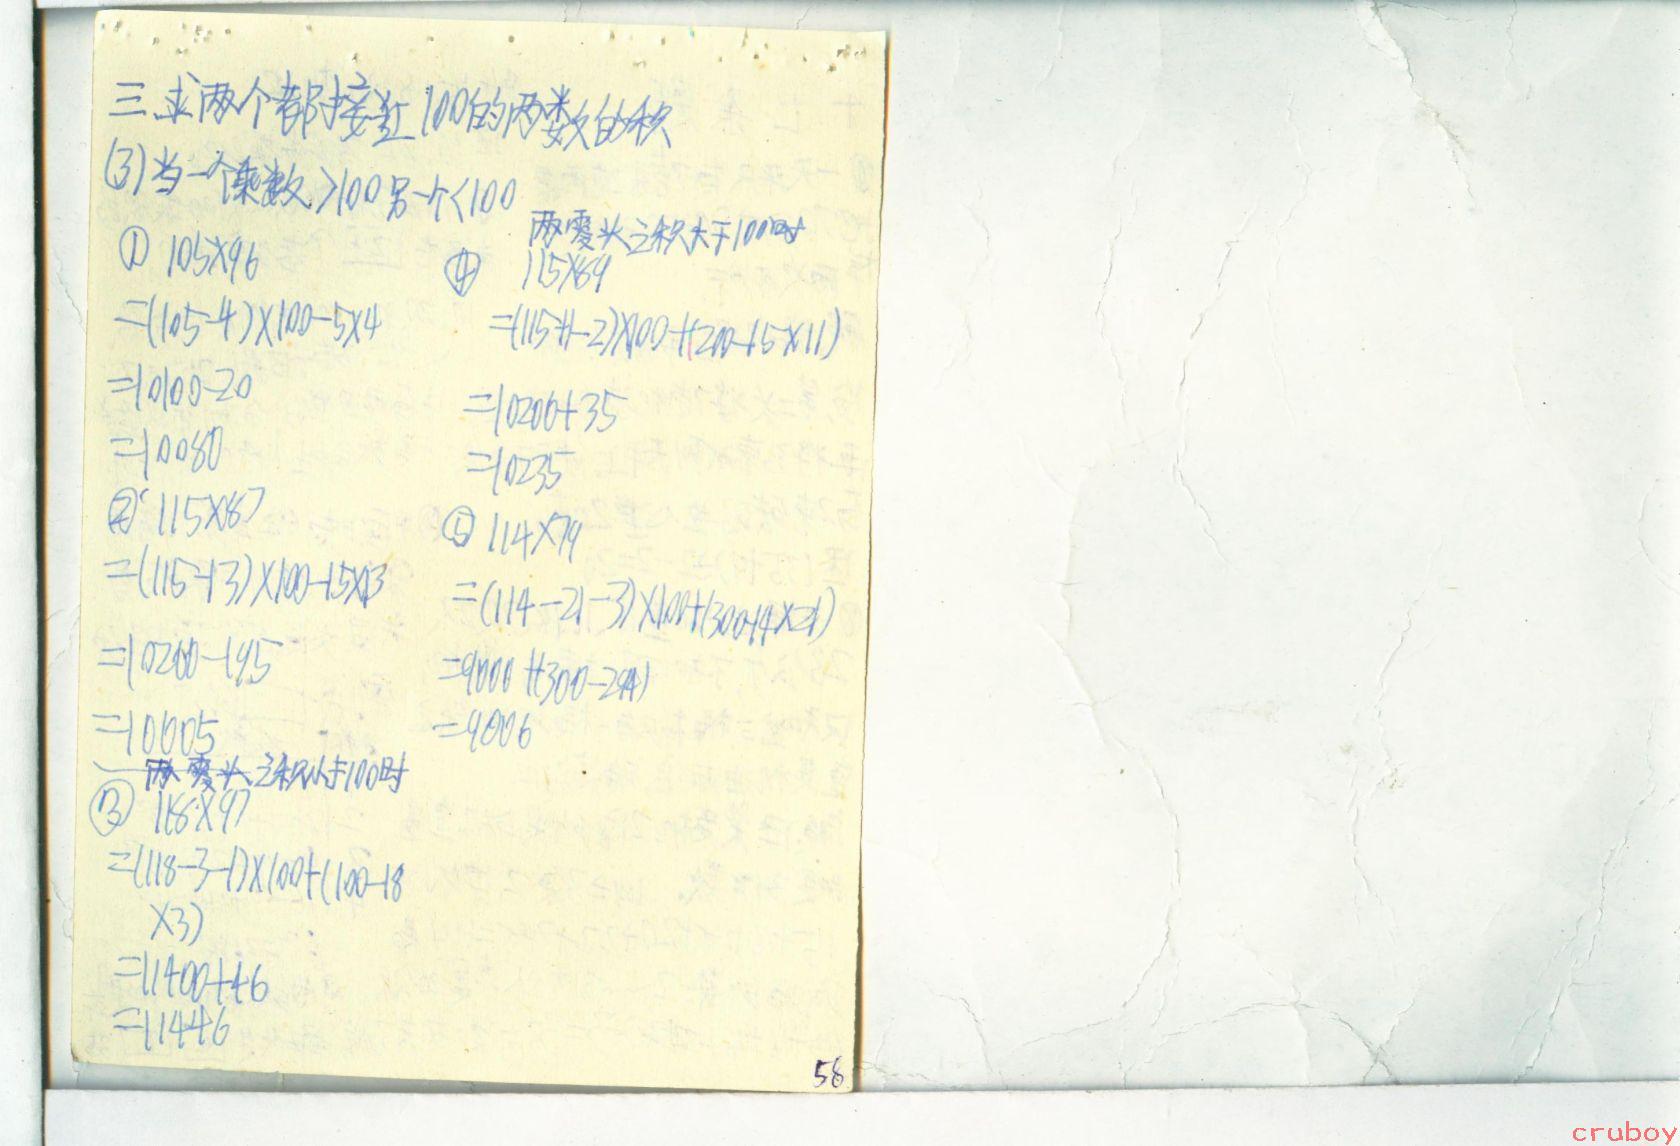 三.求两个都接近100的两数的积
(3)当一个乘数>100另一个<100
① 105×96
=(105-4)×100-5×4
=10100-20
=10080
② 115×87
=(115-13)×100-15×13
=10200-195
=10005
两零头之积小于100时
③ 118×97
=(118-3-1)×100+(100-18
×3)
=11400+46
=11446
两零头之积大于100时
④ 115×89
=(115-11-2)×100+(200-15×11)
=10200+35
=10235
⑤ 114×79
=(114-21-3)×100+(300-14×21)
=9000+(300-294)
=9006
58
cruboy